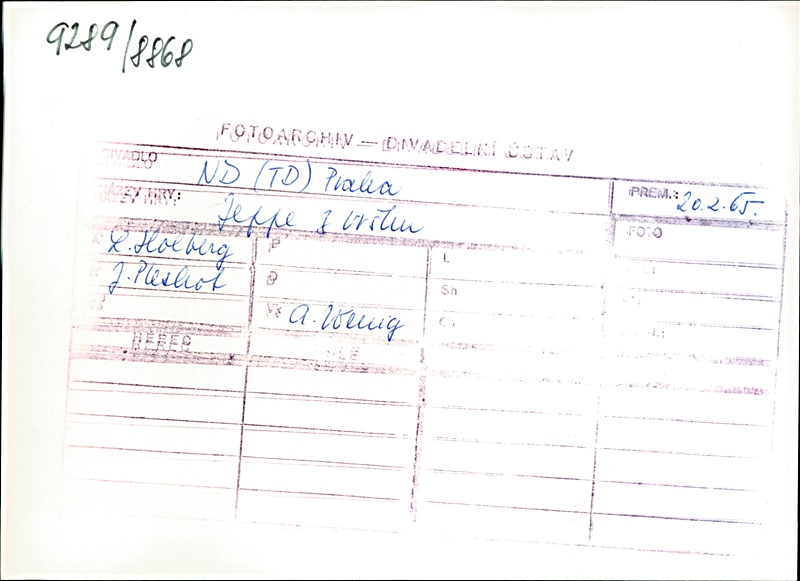 9289/8868
FOTOARCHIV — DIVADELNÍ ÚSTAV
DIVADLO ND (TD) Praha PREM.: 20.2.65.
NÁZEV HRY: Jeppe z vrchu FOTO
L. Holberg P L
J. Pleskot D Sn
Vč A. Wenig Ch
HEREC